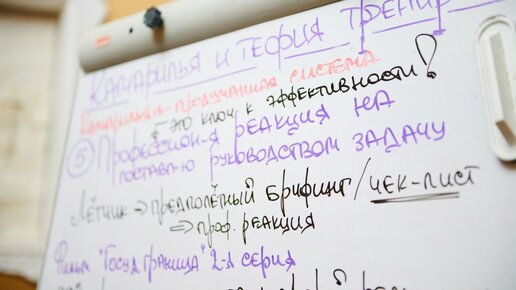 Камарилья и теория тренир
Камарилья - продуманная система
- это ключ к эффективности!
⑤ Профессион-я реакция на
поставл-ю руководством задачу
Лётчик ⇒ предполётный брифинг / чек-лист
⇒ проф. реакция
Фильм "Госуд. граница" 2-я серия